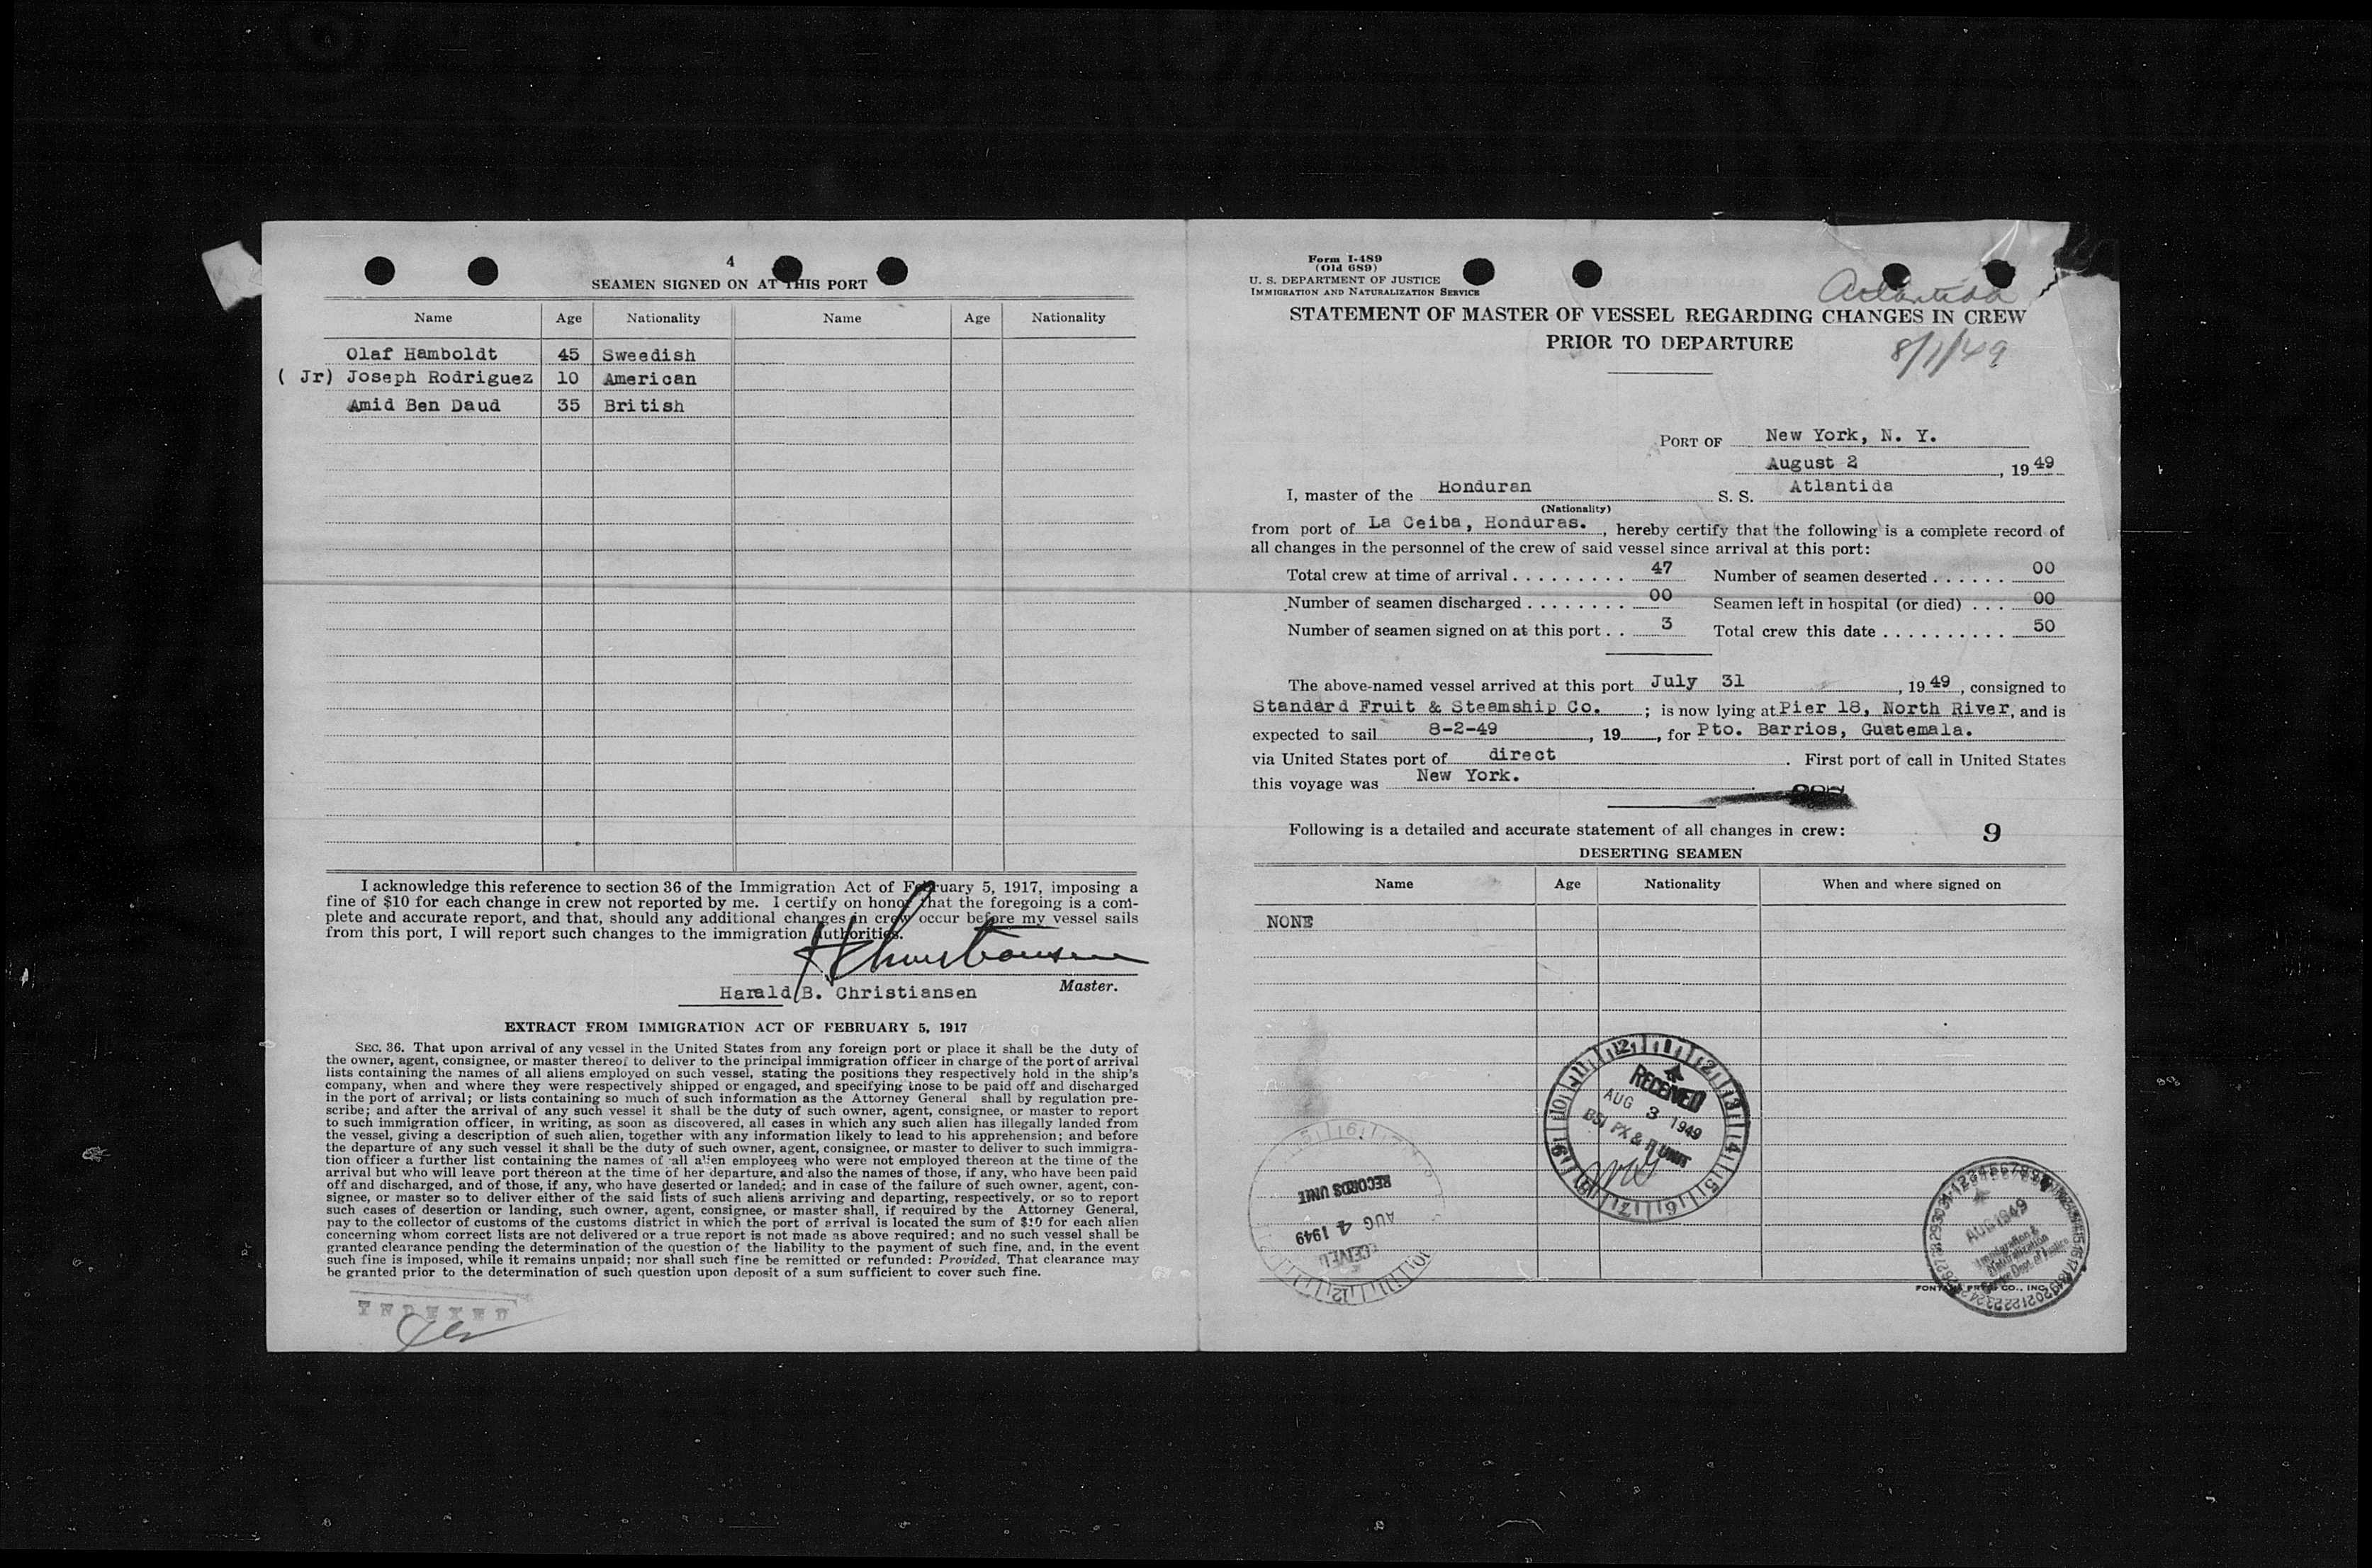 4
SEAMEN SIGNED ON AT THIS PORT
Name Age Nationality Name Age Nationality
Olaf Hamboldt 45 Sweedish
( Jr) Joseph Rodriguez 10 American
Amid Ben Daud 35 British
I acknowledge this reference to section 36 of the Immigration Act of February 5, 1917, imposing a
fine of $10 for each change in crew not reported by me. I certify on honor that the foregoing is a com-
plete and accurate report, and that, should any additional changes in crew occur before my vessel sails
from this port, I will report such changes to the immigration authorities.
Harald B. Christiansen Master.
EXTRACT FROM IMMIGRATION ACT OF FEBRUARY 5, 1917
SEC. 36. That upon arrival of any vessel in the United States from any foreign port or place it shall be the duty of
the owner, agent, consignee, or master thereof to deliver to the principal immigration officer in charge of the port of arrival
lists containing the names of all aliens employed on such vessel, stating the positions they respectively hold in the ship's
company, when and where they were respectively shipped or engaged, and specifying those to be paid off and discharged
in the port of arrival; or lists containing so much of such information as the Attorney General shall by regulation pre-
scribe; and after the arrival of any such vessel it shall be the duty of such owner, agent, consignee, or master to report
to such immigration officer, in writing, as soon as discovered, all cases in which any such alien has illegally landed from
the vessel, giving a description of such alien, together with any information likely to lead to his apprehension; and before
the departure of any such vessel it shall be the duty of such owner, agent, consignee, or master to deliver to such immigra-
tion officer a further list containing the names of all alien employees who were not employed thereon at the time of the
arrival but who will leave port thereon at the time of her departure, and also the names of those, if any, who have been paid
off and discharged, and of those, if any, who have deserted or landed; and in case of the failure of such owner, agent, con-
signee, or master so to deliver either of the said lists of such aliens arriving and departing, respectively, or so to report
such cases of desertion or landing, such owner, agent, consignee, or master shall, if required by the Attorney General,
pay to the collector of customs of the customs district in which the port of arrival is located the sum of $10 for each alien
concerning whom correct lists are not delivered or a true report is not made as above required; and no such vessel shall be
granted clearance pending the determination of the question of the liability to the payment of such fine, and, in the event
such fine is imposed, while it remains unpaid; nor shall such fine be remitted or refunded: Provided, That clearance may
be granted prior to the determination of such question upon deposit of a sum sufficient to cover such fine.
INDEXED
Form I-489
(Old 689)
U. S. DEPARTMENT OF JUSTICE
IMMIGRATION AND NATURALIZATION SERVICE
Atlantida
STATEMENT OF MASTER OF VESSEL REGARDING CHANGES IN CREW
PRIOR TO DEPARTURE
8/1/49
PORT OF New York, N. Y.
August 2, 1949
I, master of the Honduran S. S. Atlantida
(Nationality)
from port of La Ceiba, Honduras., hereby certify that the following is a complete record of
all changes in the personnel of the crew of said vessel since arrival at this port:
Total crew at time of arrival . . . . . . . . . 47 Number of seamen deserted . . . . . . 00
Number of seamen discharged . . . . . . . . 00 Seamen left in hospital (or died) . . . 00
Number of seamen signed on at this port . . 3 Total crew this date . . . . . . . . . . 50
The above-named vessel arrived at this port July 31, 1949, consigned to
Standard Fruit & Steamship Co. ; is now lying at Pier 18, North River, and is
expected to sail 8-2-49, 19, for Pto. Barrios, Guatemala.
via United States port of direct. First port of call in United States
this voyage was New York.
Following is a detailed and accurate statement of all changes in crew: 9
DESERTING SEAMEN
Name Age Nationality When and where signed on
NONE
RECEIVED
AUG 3 1949
BSI PX & R UNIT
RECORDS UNIT
AUG 4 1949
RECEIVED
AUG 1949
Immigration &
Naturalization
Service Dept. of Justice